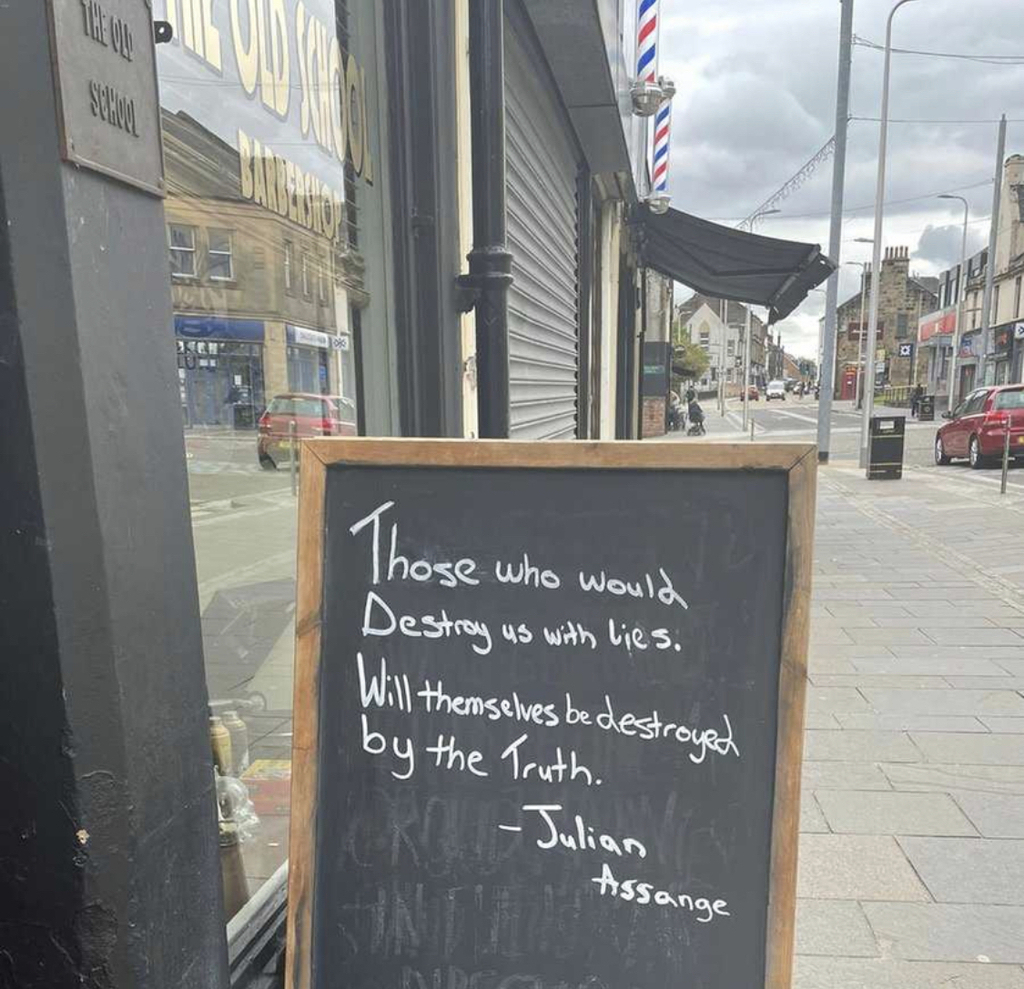 THE OLD
SCHOOL
THE OLD SCHOOL
BARBERSHOP
Those who would
Destroy us with lies.
Will themselves be destroyed
by the Truth.
- Julian
Assange